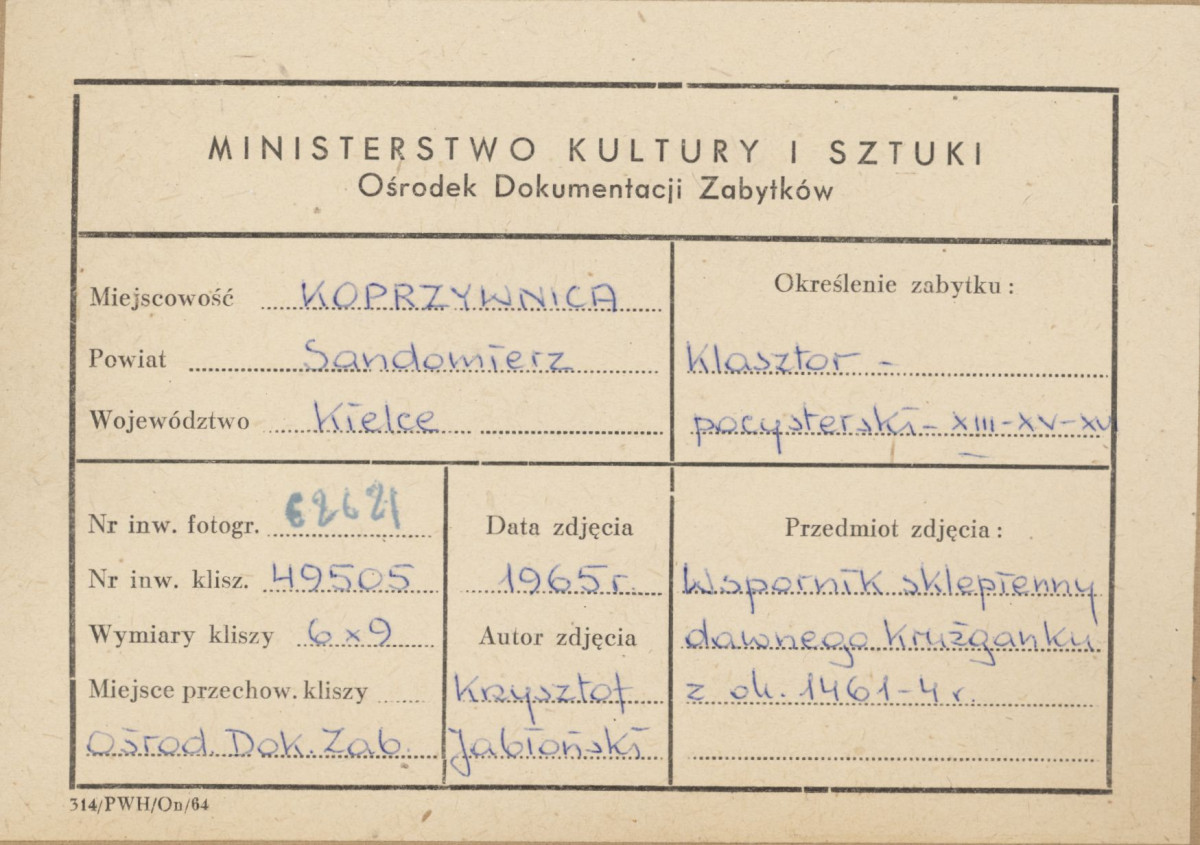 MINISTERSTWO KULTURY I SZTUKI
Ośrodek Dokumentacji Zabytków
Miejscowość KOPRZYWNICA
Powiat Sandomierz
Województwo Kielce
Określenie zabytku:
Klasztor -
pocysterski - XIII-XV-XVI
Nr inw. fotogr. 62621
Nr inw. klisz. 49505
Wymiary kliszy 6x9
Miejsce przechow. kliszy
Ośrod. Dok. Zab.
Data zdjęcia
1965 r.
Autor zdjęcia
Krzysztof
Jabłoński
Przedmiot zdjęcia:
Wspornik sklepienny
dawnego krużganku
z ok. 1461-4 r.
314/PWH/On/64